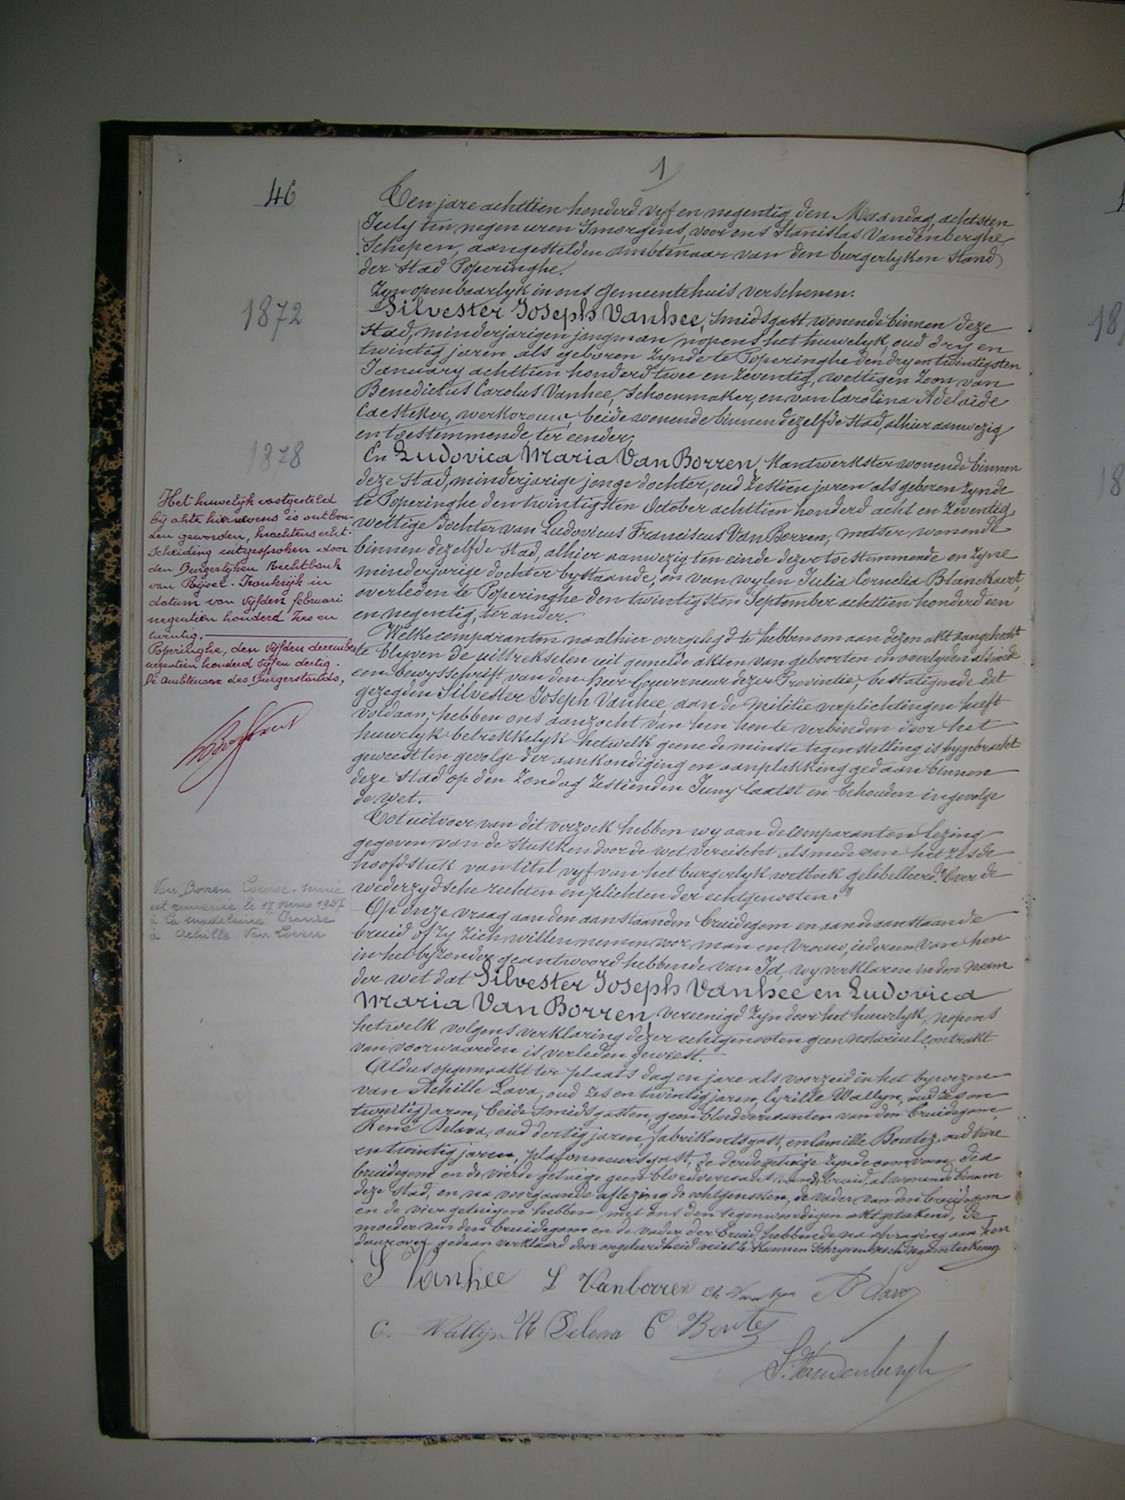 1
46
Ten jare achttien honderd vyf en negentig den Maandag achtsten
July ten negen uren smorgens, voor ons Stanislas Vandenberghe
Schepen, aangestelden ambtenaar van den burgerlyken Stand
der Stad Poperinghe.
Zyn openbaarlyk in ons gemeentehuis verschenen.
1872
Silvester Joseph Vanhee, Smidsgast wonende binnen deze
Stad, minderjarigen jongman nopens het huwelyk, oud dry en
twintig jaren als geboren zynde te Poperinghe den dry en twintigsten
January achttien honderd twee en zeventig, wettigen zoon van
Benedictus Carolus Vanhee, Schoenmaker, en van Carolina Adelaide
Caesteker, werkvrouw, beide wonende binnen dezelfde Stad, alhier aanwezig
en toestemmende ter eender,
1878
En Ludovica Maria Van Borren, Kantwerkster wonende binnen
deze Stad, minderjarige jonge dochter, oud zestien jaren als geboren zynde
te Poperinghe den twintigsten October achttien honderd acht en zeventig,
wettige dochter van Ludovicus Franciscus Van Borren, metser, wonende
binnen dezelfde Stad, alhier aanwezig ten einde dezer toestemmende en zyne
minderjarige dochter bystaande, en van wylen Julia Cornelia Blanckaert,
overleden te Poperinghe den twintigsten September achttien honderd een
en negentig, ter ander.
Welke comparanten na alhier overgelegd te hebben om aan dezen akt aangehecht
te blyven de uittrekselen uit gemelde akten van geboorten en overlyden alsmede
een bewysschrift van den heer Gouverneur dezer Provintie, bestatigende dat
gezegden Silvester Joseph Vanhee, aan de Militie verplichtingen heeft
voldaan; hebben ons aanzocht van hen heute verbinden door het
huwelyk betrekkelyk hetwelk geene de minste tegenstelling is bygebracht
geweest ten gevolge der aankondiging en aanplakking gedaan binnen
deze Stad op den Zondag Zestienden Juny laatst en behouden ingevolge
de wet.
Tot uitvoer van dit verzoek hebben wy aan de comparanten lezing
gegeven van de stukken door de wet vereischt alsmede van het zesde
hoofdstuk van titel vyf van het burgerlyk wetboek getitelleerd "Over de
wederzydsche rechten en plichten der echtgenooten."
Op onze vraag aan den aanstaanden bruidegom en aan de aanstaande
bruid of zy zich willen nemen voor man en vrouw, iedereen van hen
in het byzonder geantwoord hebbende van Ja, wy verklaren in den naam
der wet dat Silvester Joseph Vanhee en Ludovica
Maria Van Borren, vereenigd zyn door het huwelyk, nopens
hetwelk volgens verklaring dezer echtgenooten geen notarieel contrakt
van voorwaarden is verleden geweest.
Aldus opgemaakt ter plaats dag en jare als voorzeid in het bywezen
van Achille Lava, oud zes en twintig jaren, Cyrille Wallyn, oud zes en
twintig jaren, beide Smidsgasten, geen bloedverwanten van den bruidegom,
René Delava, oud dertig jaren, fabrikantsgast, en Camille Bentez, oud twee
en twintig jaren, plafonneursgast, de derde getuige zynde oom van den
bruidegom en de vierde getuige geen bloedverwant van de bruid, al wonende binnen
deze Stad, en na voorgaande aflezing de echtgenooten, de vader van den bruidegom
en de vier getuigen hebben met ons den tegenwoordigen akt geteekend, de
moeder van den bruidegom en de vader der bruid, hebbende na afvraging aan hen
daarover gedaan verklaard door ongeleerdheid niet te kunnen schryven noch naamteekenen
S Vanhee L Vanborren A Lava
C. Wallyn R Delava C Bentez
S. Vandenberghe
Het huwelijk vastgesteld
bij akte hiernevens is ontbon-
den geworden, krachtens echt-
scheiding uitgesproken door
den Burgerlijken Rechtbank
van Rijsel - Frankrijk in
datum van vijfden februari
negentien honderd zes en
twintig.
Poperinghe, den vijfden december
negentien honderd vijf en dertig.
De Ambtenaar des Burgerstands,
Van Borren Louise Marie
est remariée le 17 mars 1927
à La Madeleine France
à Achille Van